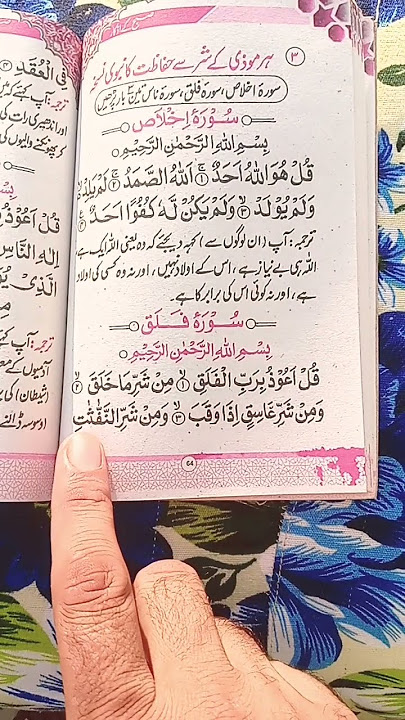 صبح کے اذکار
۳ ہر موذی کے شر سے حفاظت کا نبوی نسخہ
سورۂ اخلاص، سورۂ فلق، سورۂ ناس تین بار پڑھیں
سُوْرَۂ اِخْلَاص
بِسْمِ اللهِ الرَّحْمٰنِ الرَّحِيْمِ
قُلْ هُوَ اللهُ اَحَدٌ ۚ ۱ اَللهُ الصَّمَدُ ۚ ۲ لَمْ يَلِدْ ۙ
وَلَمْ يُوْلَدْ ۙ ۳ وَلَمْ يَكُنْ لَّهٗ كُفُوًا اَحَدٌ ۴
ترجمہ: آپ (ان لوگوں سے) کہہ دیجئے کہ وہ یعنی اللہ ایک ہے،
اللہ ہی بے نیاز ہے، اس کے اولاد نہیں، اور نہ وہ کسی کی اولاد
ہے، اور نہ کوئی اس کی برابر کا ہے۔
سُوْرَۂ فَلَق
بِسْمِ اللهِ الرَّحْمٰنِ الرَّحِيْمِ
قُلْ اَعُوْذُ بِرَبِّ الْفَلَقِ ۙ ۱ مِنْ شَرِّ مَا خَلَقَ ۙ ۲
وَمِنْ شَرِّ غَاسِقٍ اِذَا وَقَبَ ۙ ۳ وَمِنْ شَرِّ النَّفّٰثٰتِ
64
فِي الْعُقَدِ ۙ ۴
ترجمہ: آپ کہئے کہ میں
اور اندھیری رات کی
قُلْ اَعُوْذُ
اِلٰهِ النَّاسِ
الَّذِيْ يُوَ
ترجمہ: آپ کہئے
آدمیوں کے مع
(شیطان) کی